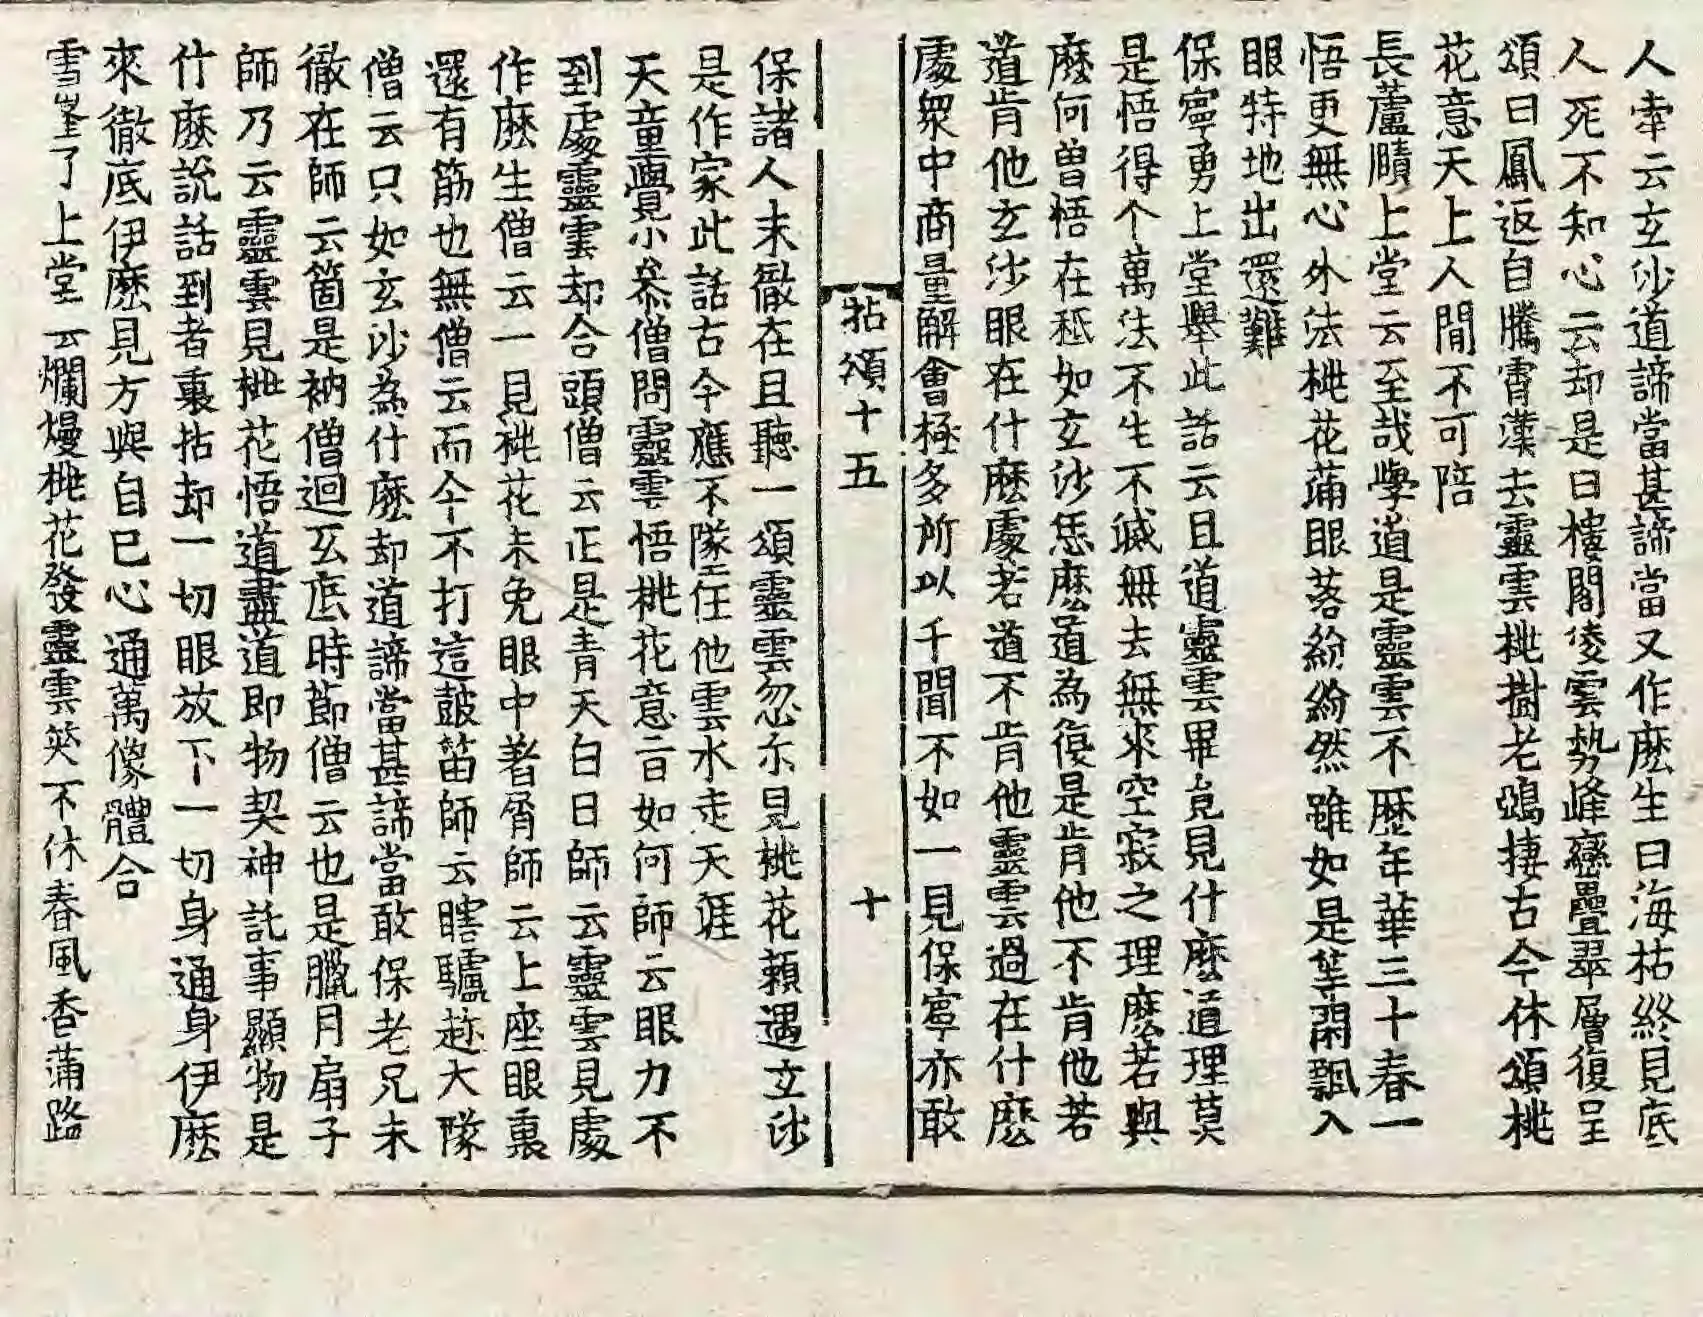 人牽云玄沙道諦當甚諦當又作麽生曰海枯終見底
人死不知心云却是曰樓閣凌雲勢峰巒疊翠層復呈
頌曰鳳返自騰霄漢去靈雲桃樹老鵶捿古今休頌桃
花意天上人間不可陪
長蘆賾上堂云至哉學道是靈雲不歷年華三十春一
悟更無心外法桃花蒲眼落紛紛然雖如是䓁閑飄入
眼特地出還難
保寧勇上堂舉此話云且道靈雲畢竟見什麽道理莫
是悟得个萬法不生不滅無去無來空寂之理麽若與
麽何曾悟在秪如玄沙恁麽道為復是肯他不肯他若
道肯他玄沙眼在什麽處若道不肯他靈雲過在什麽
處衆中商量解會極多所以千聞不如一見保寧亦敢
拈頌十五 十
保諸人未徹在且聽一頌靈雲忽尒見桃花頼遇玄沙
是作家此話古今應不墜任他雲水走天涯
天童覺小叅僧問靈雲悟桃花意旨如何師云眼力不
到處靈雲却合頭僧云正是青天白日師云靈雲見處
作麽生僧云一見桃花未免眼中著屑師云上座眼裏
還有筋也無僧云而今不打這鼓笛師云瞎驢趂大隊
僧云只如玄沙為什麽却道諦當甚諦當敢保老兄未
徹在師云箇是衲僧迴互底時節僧云也是臘月扇子
師乃云靈雲見桃花悟道盡道即物契神託事顯物是
什麽說話到者裏拈却一切眼放下一切身通身伊麽
來徹底伊麽見方與自己心通萬像體合
雪峯了上堂云爛熳桃花發靈雲笑不休春風香蒲路